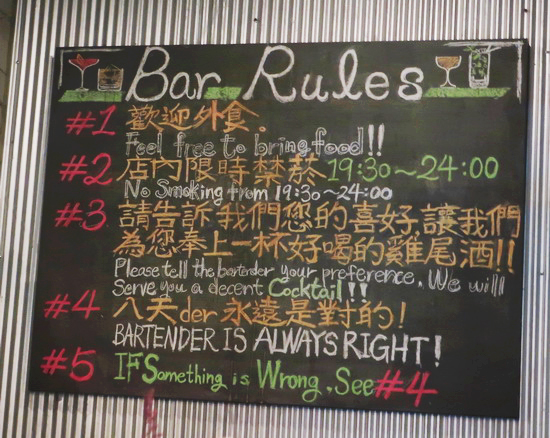 Bar Rules
#1 歡迎外食.
Feel free to bring food!!
#2 店內限時禁菸 19:30~24:00
No Smoking from 19:30~24:00
#3 請告訴我們您的喜好,讓我們
為您奉上一杯好喝的雞尾酒!!
Please tell the bartender your preference. We will
Serve you a decent Cocktail!!
#4 八夫der永遠是對的!
BARTENDER IS ALWAYS RIGHT!
#5 IF Something is Wrong. See #4